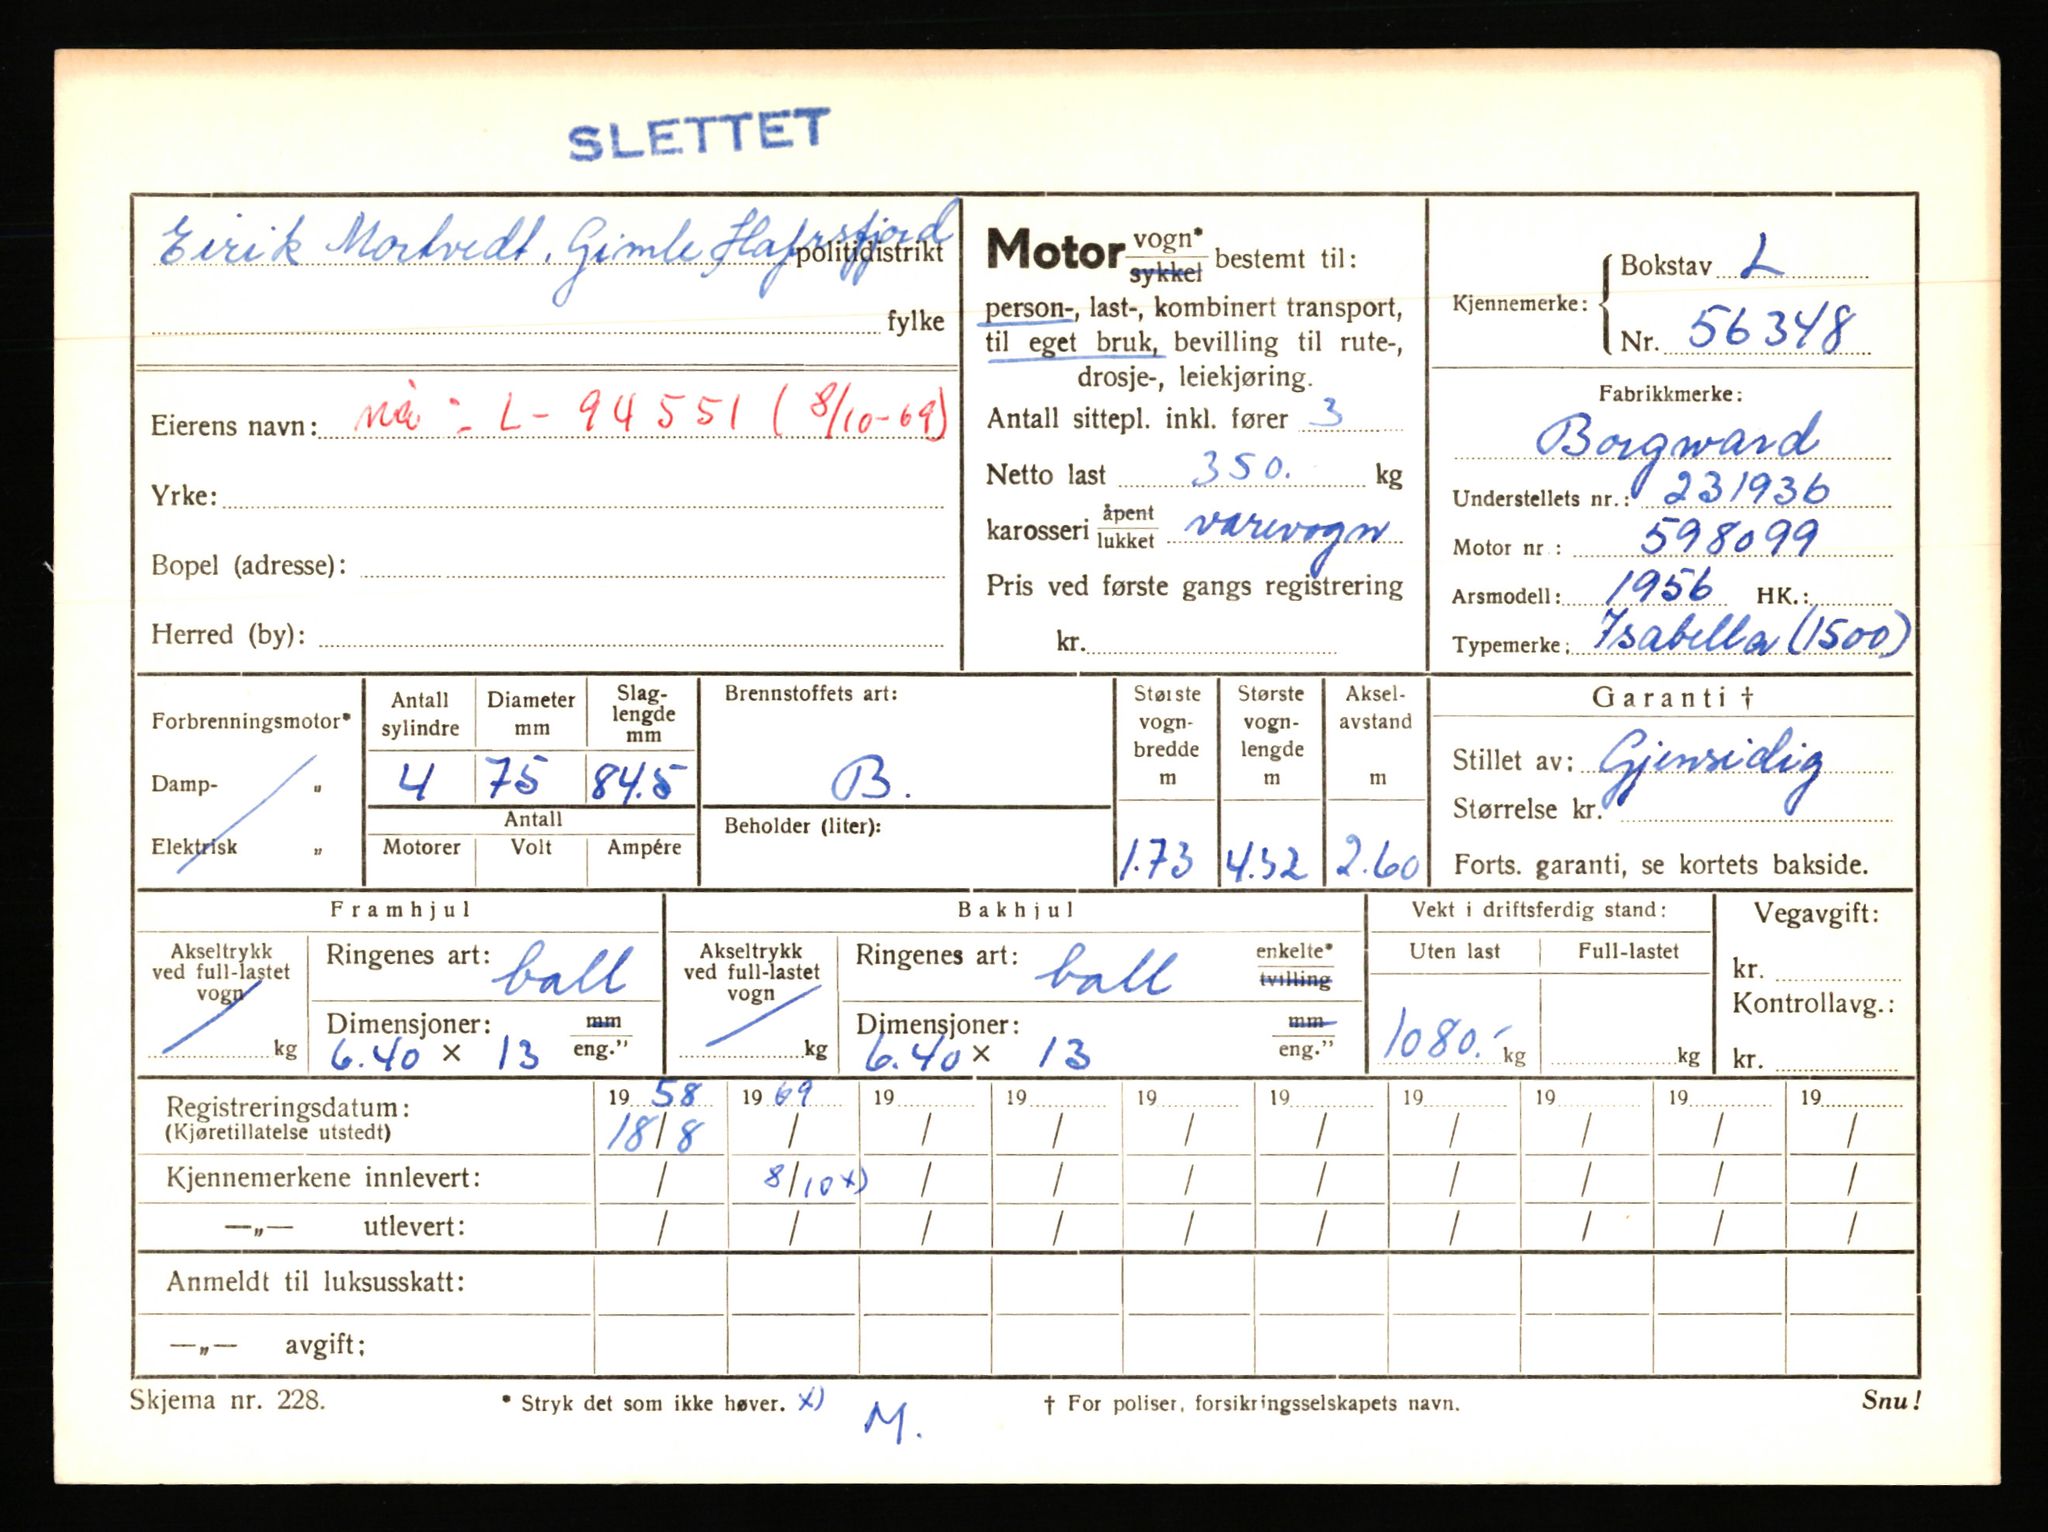 SLETTET
Eirik Mortvedt. Gimle Hafrsfjord politidistrikt
fylke
Eierens navn: nå: L-94551 (8/10-69)
Yrke:
Bopel (adresse):
Herred (by):
Motor vogn* sykkel bestemt til:
person-, last-, kombinert transport,
til eget bruk, bevilling til rute-,
drosje-, leiekjøring.
Antall sittepl. inkl. fører 3
Netto last 350. kg
karosseri åpent lukket varevogn
Pris ved første gangs registrering
kr.
Kjennemerke: Bokstav L
Nr. 56348
Fabrikkmerke:
Borgward
Understellets nr.: 231936
Motor nr: 598099
Arsmodell: 1956 HK.:
Typemerke: Isabella (1500)
Forbrenningsmotor*
Damp- „
Elektrisk „
Antall sylindre Diameter mm Slaglengde mm
4 75 84.5
Antall
Motorer Volt Ampére
Brennstoffets art:
B.
Beholder (liter):
Største vognbredde m 1.73
Største vognlengde m 4.32
Akselavstand m 2.60
Garanti †
Stillet av: Gjensidig
Størrelse kr.
Forts. garanti, se kortets bakside.
Framhjul
Akseltrykk ved full-lastet vogn kg
Ringenes art: ball
Dimensjoner: mm
6.40 × 13 eng."
Bakhjul
Akseltrykk ved full-lastet vogn kg
Ringenes art: ball enkelte* tvilling
Dimensjoner: mm
6.40 × 13 eng."
Vekt i driftsferdig stand:
Uten last Full-lastet
1080.- kg kg
Vegavgift:
kr.
Kontrollavg.:
kr.
Registreringsdatum: 19 58 19 69 19 19 19 19 19 19 19 19
(Kjøretillatelse utstedt) 18/8 / / / / / / / / /
Kjennemerkene innlevert: / 8/10 x) / / / / / / / /
—„— utlevert: / / / / / / / / / /
Anmeldt til luksusskatt:
—„— avgift:
Skjema nr. 228. * Stryk det som ikke høver. x) M. † For poliser, forsikringsselskapets navn. Snu!